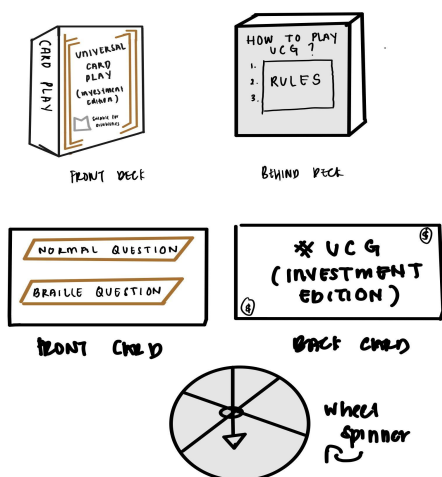 CARD PLAY
UNIVERSAL
CARD
PLAY
(investment
edition)
Suitable for
disabilities
FRONT DECK
HOW TO PLAY
UCG ?
1.
2.
3.
RULES
BEHIND DECK
NORMAL QUESTION
BRAILLE QUESTION
FRONT CARD
$
※ UCG
(INVESTMENT
EDITION)
$
BACK CARD
wheel
spinner